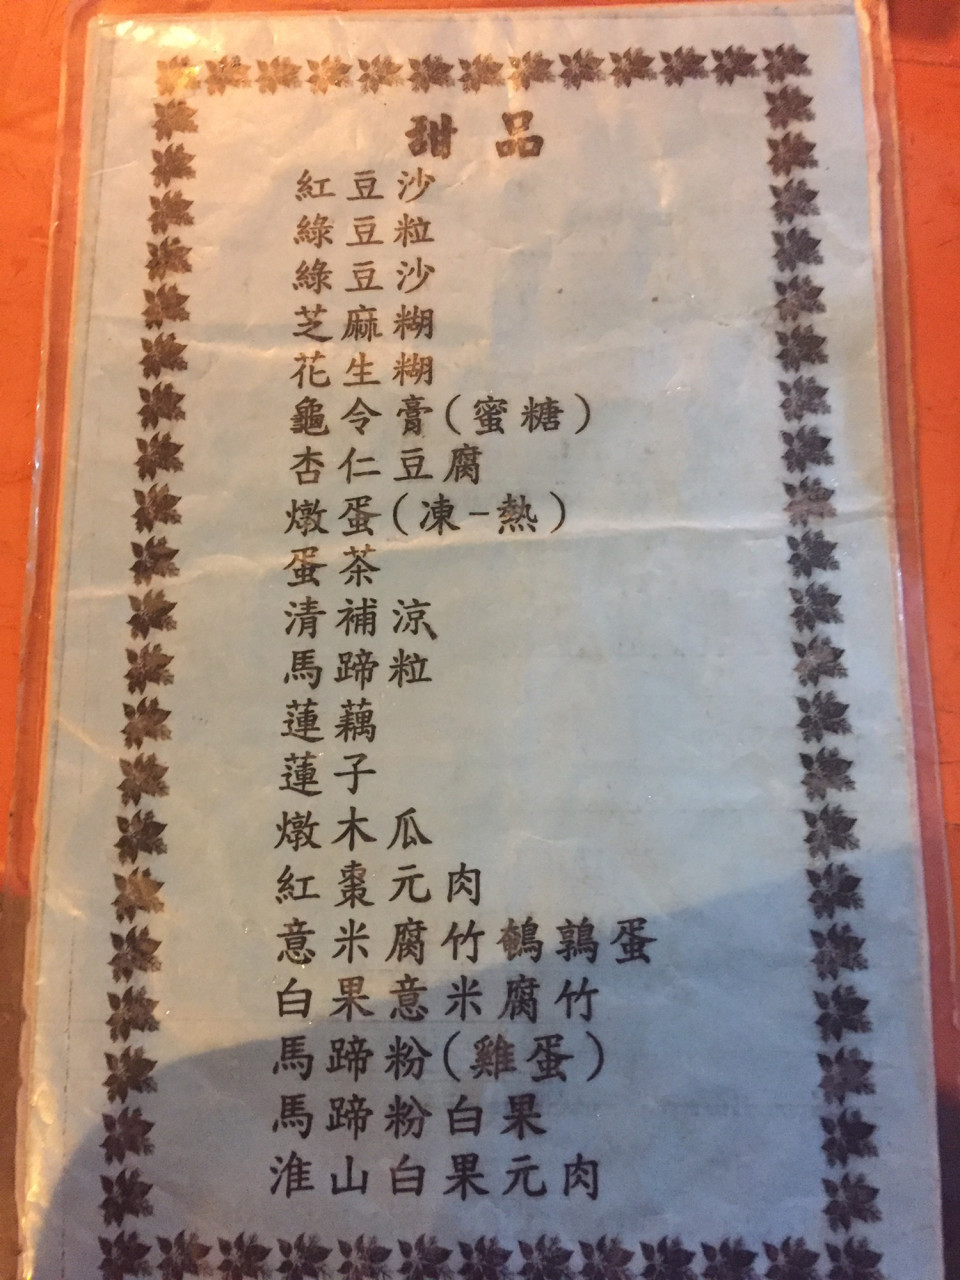 甜品
紅豆沙
綠豆粒
綠豆沙
芝麻糊
花生糊
龜令膏(蜜糖)
杏仁豆腐
燉蛋(凍-熱)
蛋茶
清補涼
馬蹄粒
蓮藕
蓮子
燉木瓜
紅棗元肉
意米腐竹鵪鶉蛋
白果意米腐竹
馬蹄粉(雞蛋)
馬蹄粉白果
淮山白果元肉